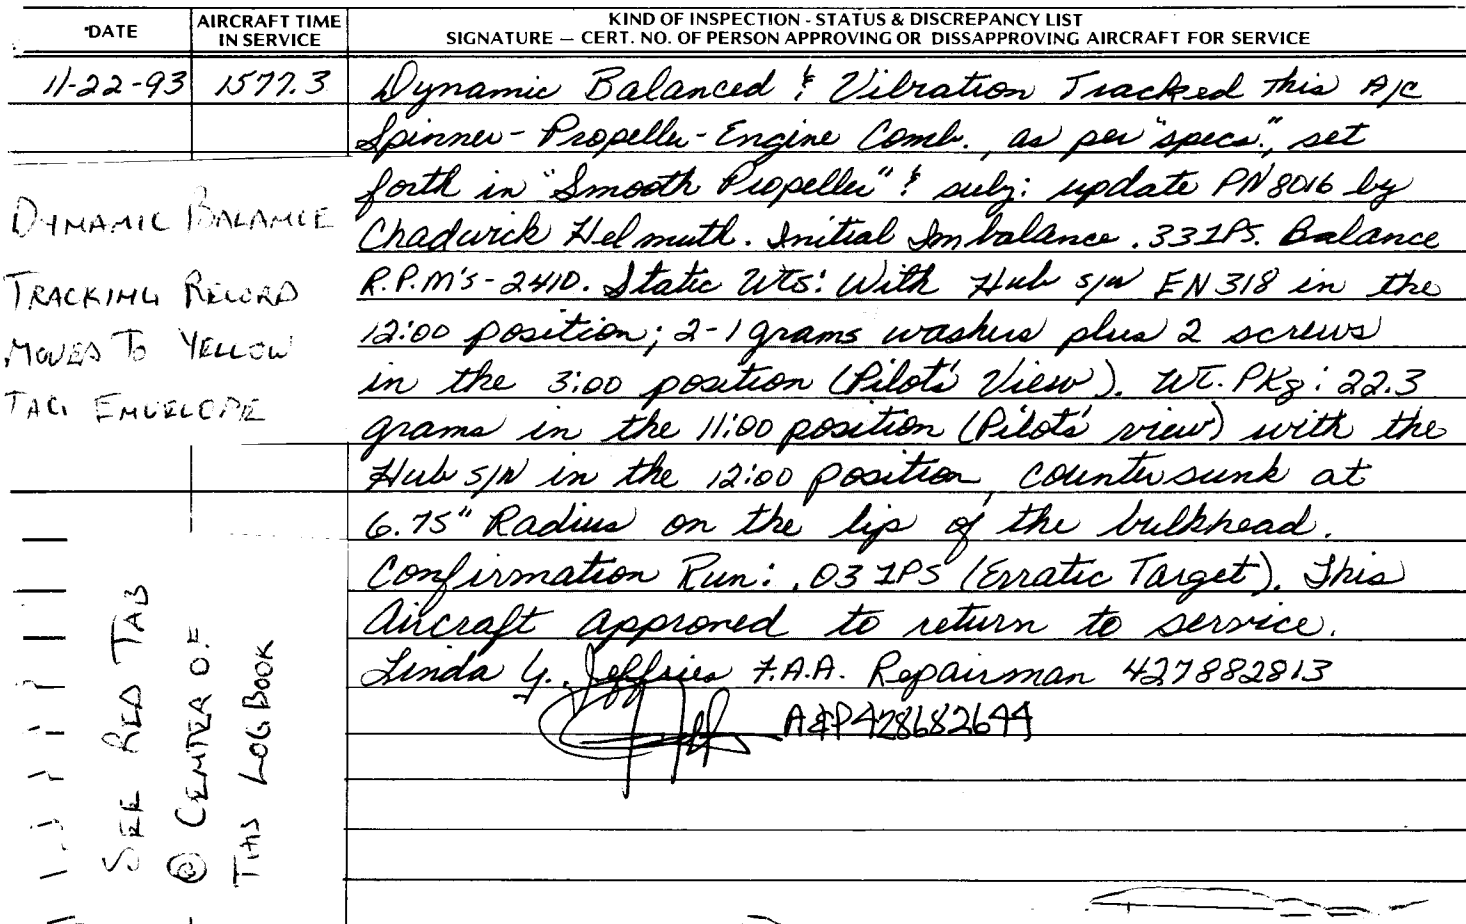 DATE
AIRCRAFT TIME
IN SERVICE
KIND OF INSPECTION - STATUS & DISCREPANCY LIST
SIGNATURE — CERT. NO. OF PERSON APPROVING OR DISSAPPROVING AIRCRAFT FOR SERVICE
11-22-93 1577.3 Dynamic Balanced & Vibration Tracked this A/C
Spinner-Propeller-Engine Comb., as per "specs.", set
forth in "Smooth Propeller" & subj: update PN 8016 by
Chadwick Helmuth. Initial Imbalance .33 IPS. Balance
R.P.M's-2410. Static WTS: With Hub S/N EN318 in the
12:00 position; 2-1 grams washers plus 2 screws
in the 3:00 position (Pilot's View). WT. PKg: 22.3
grams in the 11:00 position (Pilot's view) with the
Hub S/N in the 12:00 position, countersunk at
6.75" Radius on the lip of the bulkhead.
Confirmation Run: .03 IPS (Erratic Target). This
Aircraft approved to return to service.
Linda Y. Jeffries F.A.A. Repairman 427882813
A&P428682644
DYNAMIC BALANCE
TRACKING RECORD
MOVED TO YELLOW
TAG ENVELOPE
SEE RED TAB
@ CENTER OF
THIS LOG BOOK